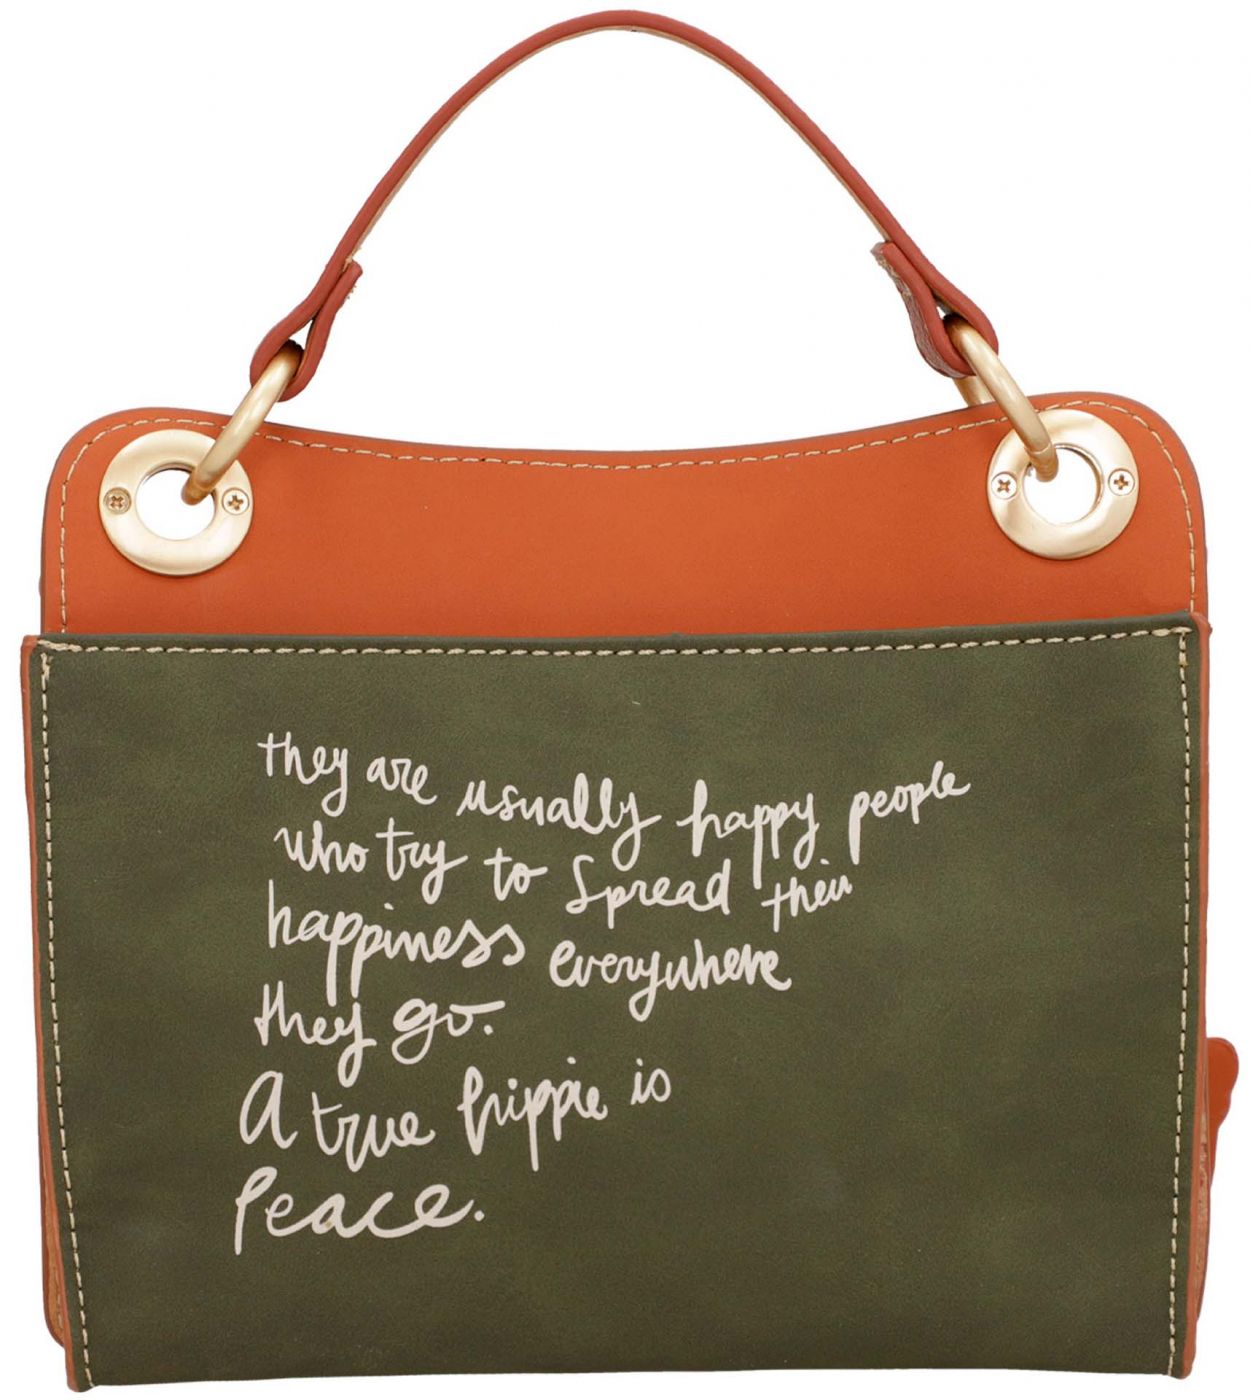 they are usually happy people
who try to Spread their
happiness everywhere
they go.
A true hippie is
Peace.